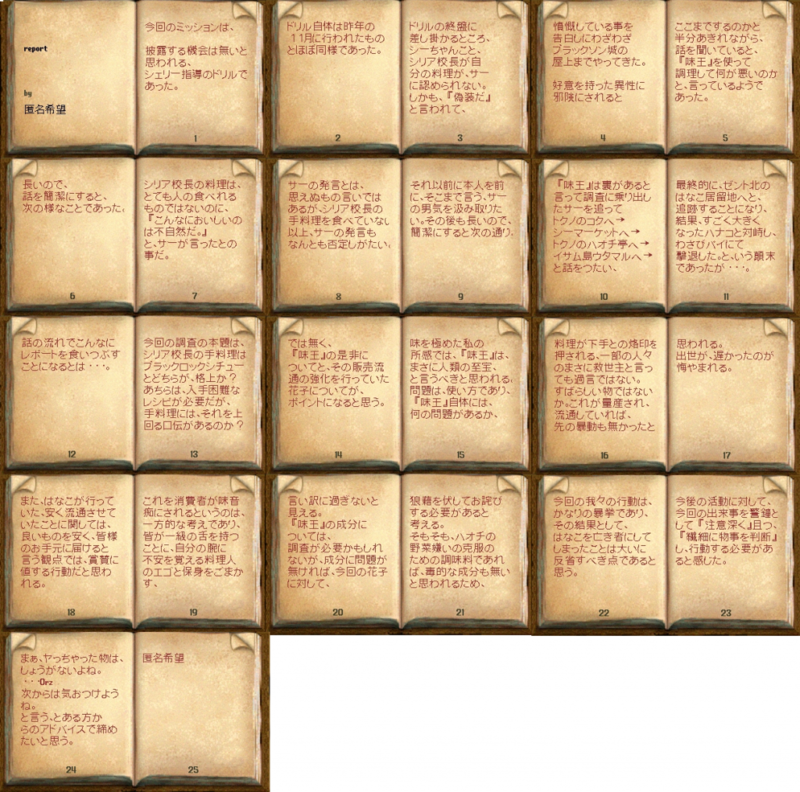 report
by
匿名希望
今回のミッションは、
披露する機会は無いと
思われる、
シェリー指導のドリルで
あった。
1
ドリル自体は昨年の
11月に行われたもの
とほぼ同様であった。
2
ドリルの終盤に
差し掛かるところ、
シーちゃんこと、
シリア校長が自
分の料理が、サー
に認められない。
しかも、『偽装だ』
と言われて、
3
憤慨している事を
告白しにわざわざ
ブラックソン城の
屋上までやってきた。
好意を持った異性に
邪険にされると
4
ここまでするのかと
半分あきれながら、
話を聞いていると、
『味王』を使って
調理して何が悪いのか
と、言っているようで
あった。
5
長いので、
話を簡潔にすると、
次の様なことであった。
6
シリア校長の料理は、
とても人の食べれる
ものではないのに、
『こんなにおいしいの
は不自然だ。』
と、サーが言ったとの
事だ。
7
サーの発言とは、
思えぬもの言いでは
あるが、シリア校長の
手料理を食べていない
以上、サーの発言も
なんとも否定しがたい。
8
それ以前に本人を前
に、そこまで言う、サー
の男気を汲み取りた
い。その後も長いので、
簡潔にすると次の通り。
9
『味王』は裏があると
言って調査に乗り出し
たサーを追って
トクノのコウへ→
シーマーケットへ→
トクノのハオチ亭へ→
イサム島ウタマルへ→
と話をつたい、
10
最終的に、ゼント北の
はなこ居留地へと、
追跡することになり、
結果、すごく大きく
なったハナコと対峙し、
わさびパイにて
撃退した。と、いう顛末
であったが・・・。
11
話の流れでこんなに
レポートを食いつぶす
ことになるとは・・・。
12
今回の調査の本題は、
シリア校長の手料理は
ブラックロックシチュー
とどちらが、格上か？
あちらは、入手困難な
レシピが必要だが、
手料理には、それを上
回る口伝があるのか？
13
では無く、
『味王』の是非に
ついてと、その販売流
通の強化を行っていた
花子についてが、
ポイントになると思う。
14
味を極めた私の
所感では、『味王』は、
まさに人類の至宝、
と言うべきと思われる。
問題は、使い方であり、
『味王』自体には、
何の問題があるか、
15
料理が下手との烙印を
押される、一部の人々
のまさに救世主と言っ
ても過言ではない。
すばらしい物ではない
か。これが量産され、
流通していれば、
先の暴動も無かったと
16
思われる。
出世が、遅かったのが
悔やまれる。
17
また、はなこが行って
いた、安く流通させて
いたことに関しては、
良いものを安く、皆様
のお手元に届けると
言う観点では、賞賛に
値する行動だと思わ
れる。
18
これを消費者が味音
痴にされるというのは、
一方的な考えであり、
皆が一級の舌を持つ
ことに、自分の腕に
不安を覚える料理人
のエゴと保身をごまか
す、
19
言い訳に過ぎないと
見える。
『味王』の成分に
ついては、
調査が必要かもしれ
ないが、成分に問題が
無ければ、今回の花子
に対して、
20
狼藉を伏してお詫び
する必要があると
考える。
そもそも、ハオチの
野菜嫌いの克服の
ための調味料であれ
ば、毒的な成分も無い
と思われるため、
21
今回の我々の行動は、
かなりの暴挙であり、
その結果として、
はなこを亡き者にして
しまったことは大いに
反省すべき点であると
思う。
22
今後の活動に対して、
今回の出来事を警鐘と
して『注意深く』且つ、
『繊細に物事を判断』
し、行動する必要があ
ると感じた。
23
まぁ、ヤっちゃった物は、
しょうがないよね。
・・・Orz
次からは気おつけよう
ね。
と言う、とある方か
らのアドバイスで締め
たいと思う。
24
匿名希望
25